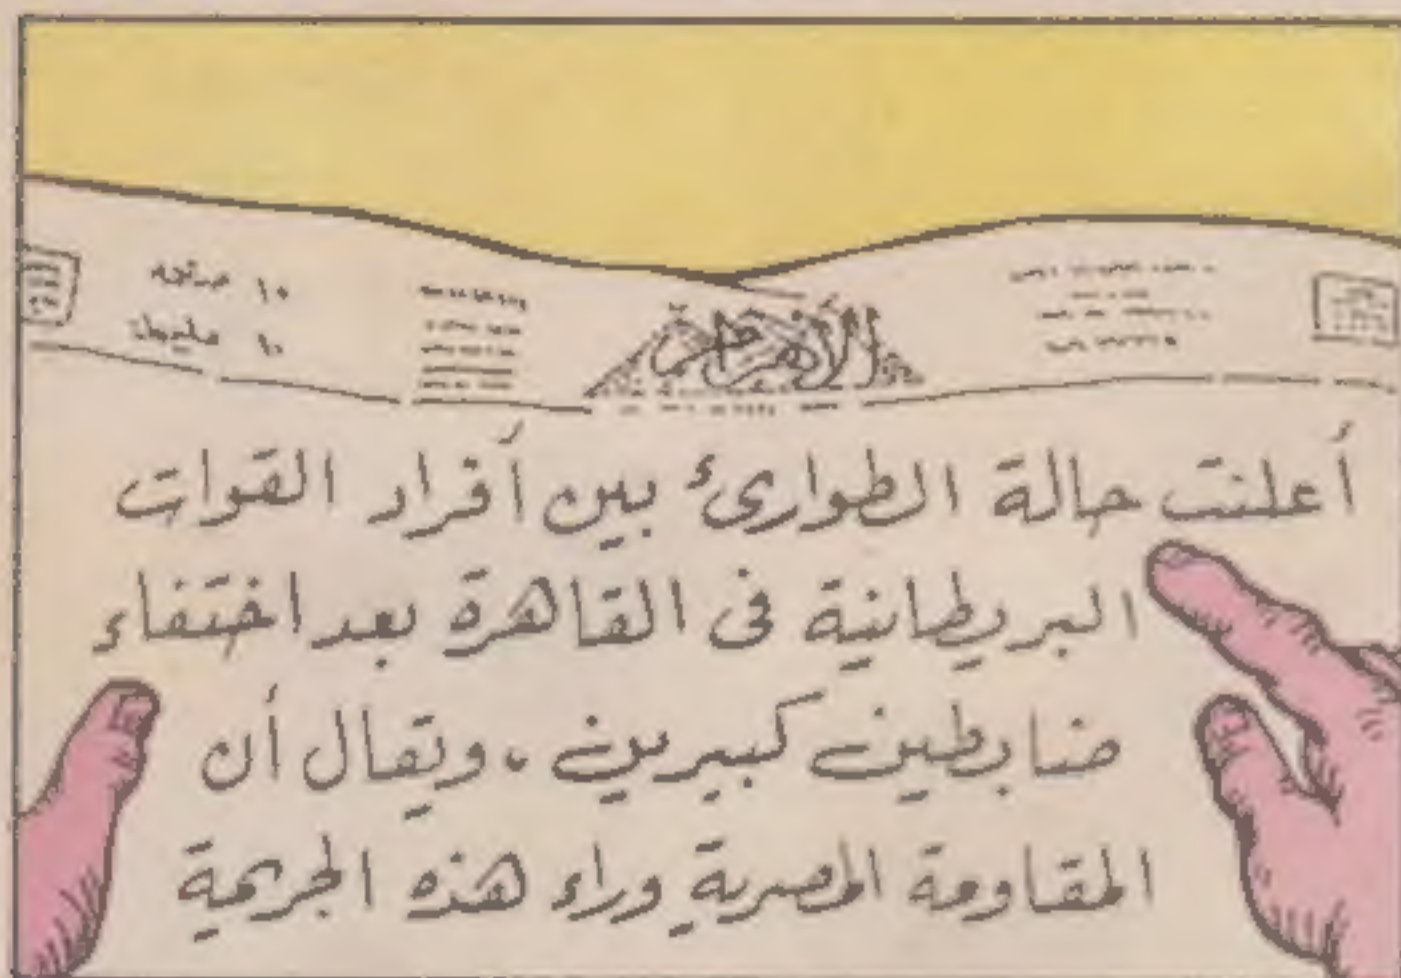 الأهرام
١٠ صفحه
١٠ مليم
أعلنت حالة الطوارئ بين أفراد القوات
البريطانية فى القاهرة بعد اختفاء
ضابطين كبيرين . ويقال أن
المقاومة المصرية وراء هذه الجريمة